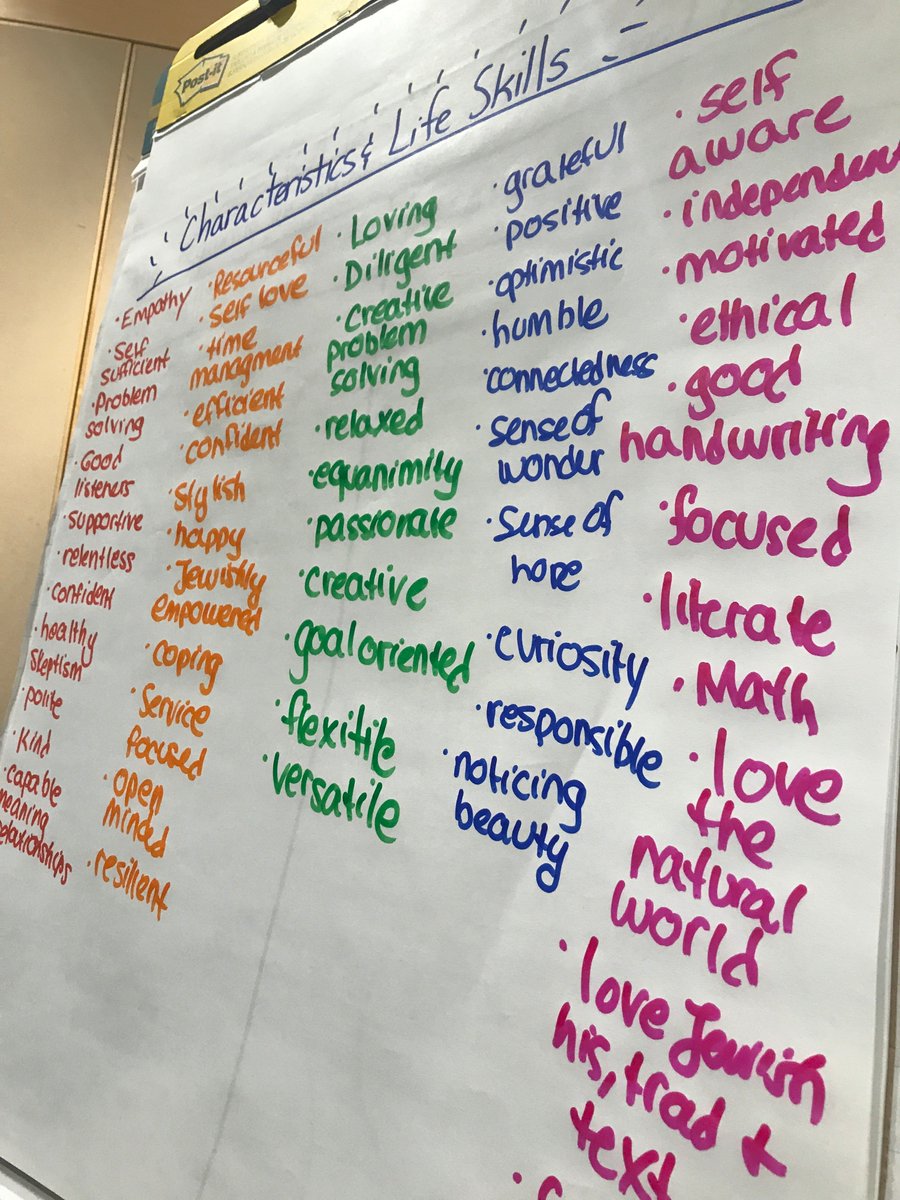 Post-it
Characteristics & Life Skills
· Empathy
· Self
sufficient
· Problem
solving
· Good
listeners
· supportive
· relentless
· confident
· healthy
skeptism
· polite
· Kind
· capable
meaning
relationships
· Resourceful
· self love
· time
managment
· efficient
· confident
· stylish
· happy
· Jewishly
empowered
· coping
· Service
focused
· open
minded
· resilient
· Loving
· Diligent
· creative
problem
solving
· relaxed
· equanimity
· passionate
· creative
· goal oriented
· flexitile
· versatile
· grateful
· positive
· optimistic
· humble
· connectedness
· sense of
wonder
· Sense of
hope
· curiosity
· responsible
· noticing
beauty
· self
aware
· independent
· motivated
· ethical
· good
handwriting
· focused
· literate
· Math
· love
the
natural
world
· love Jewish
his, trad +
text